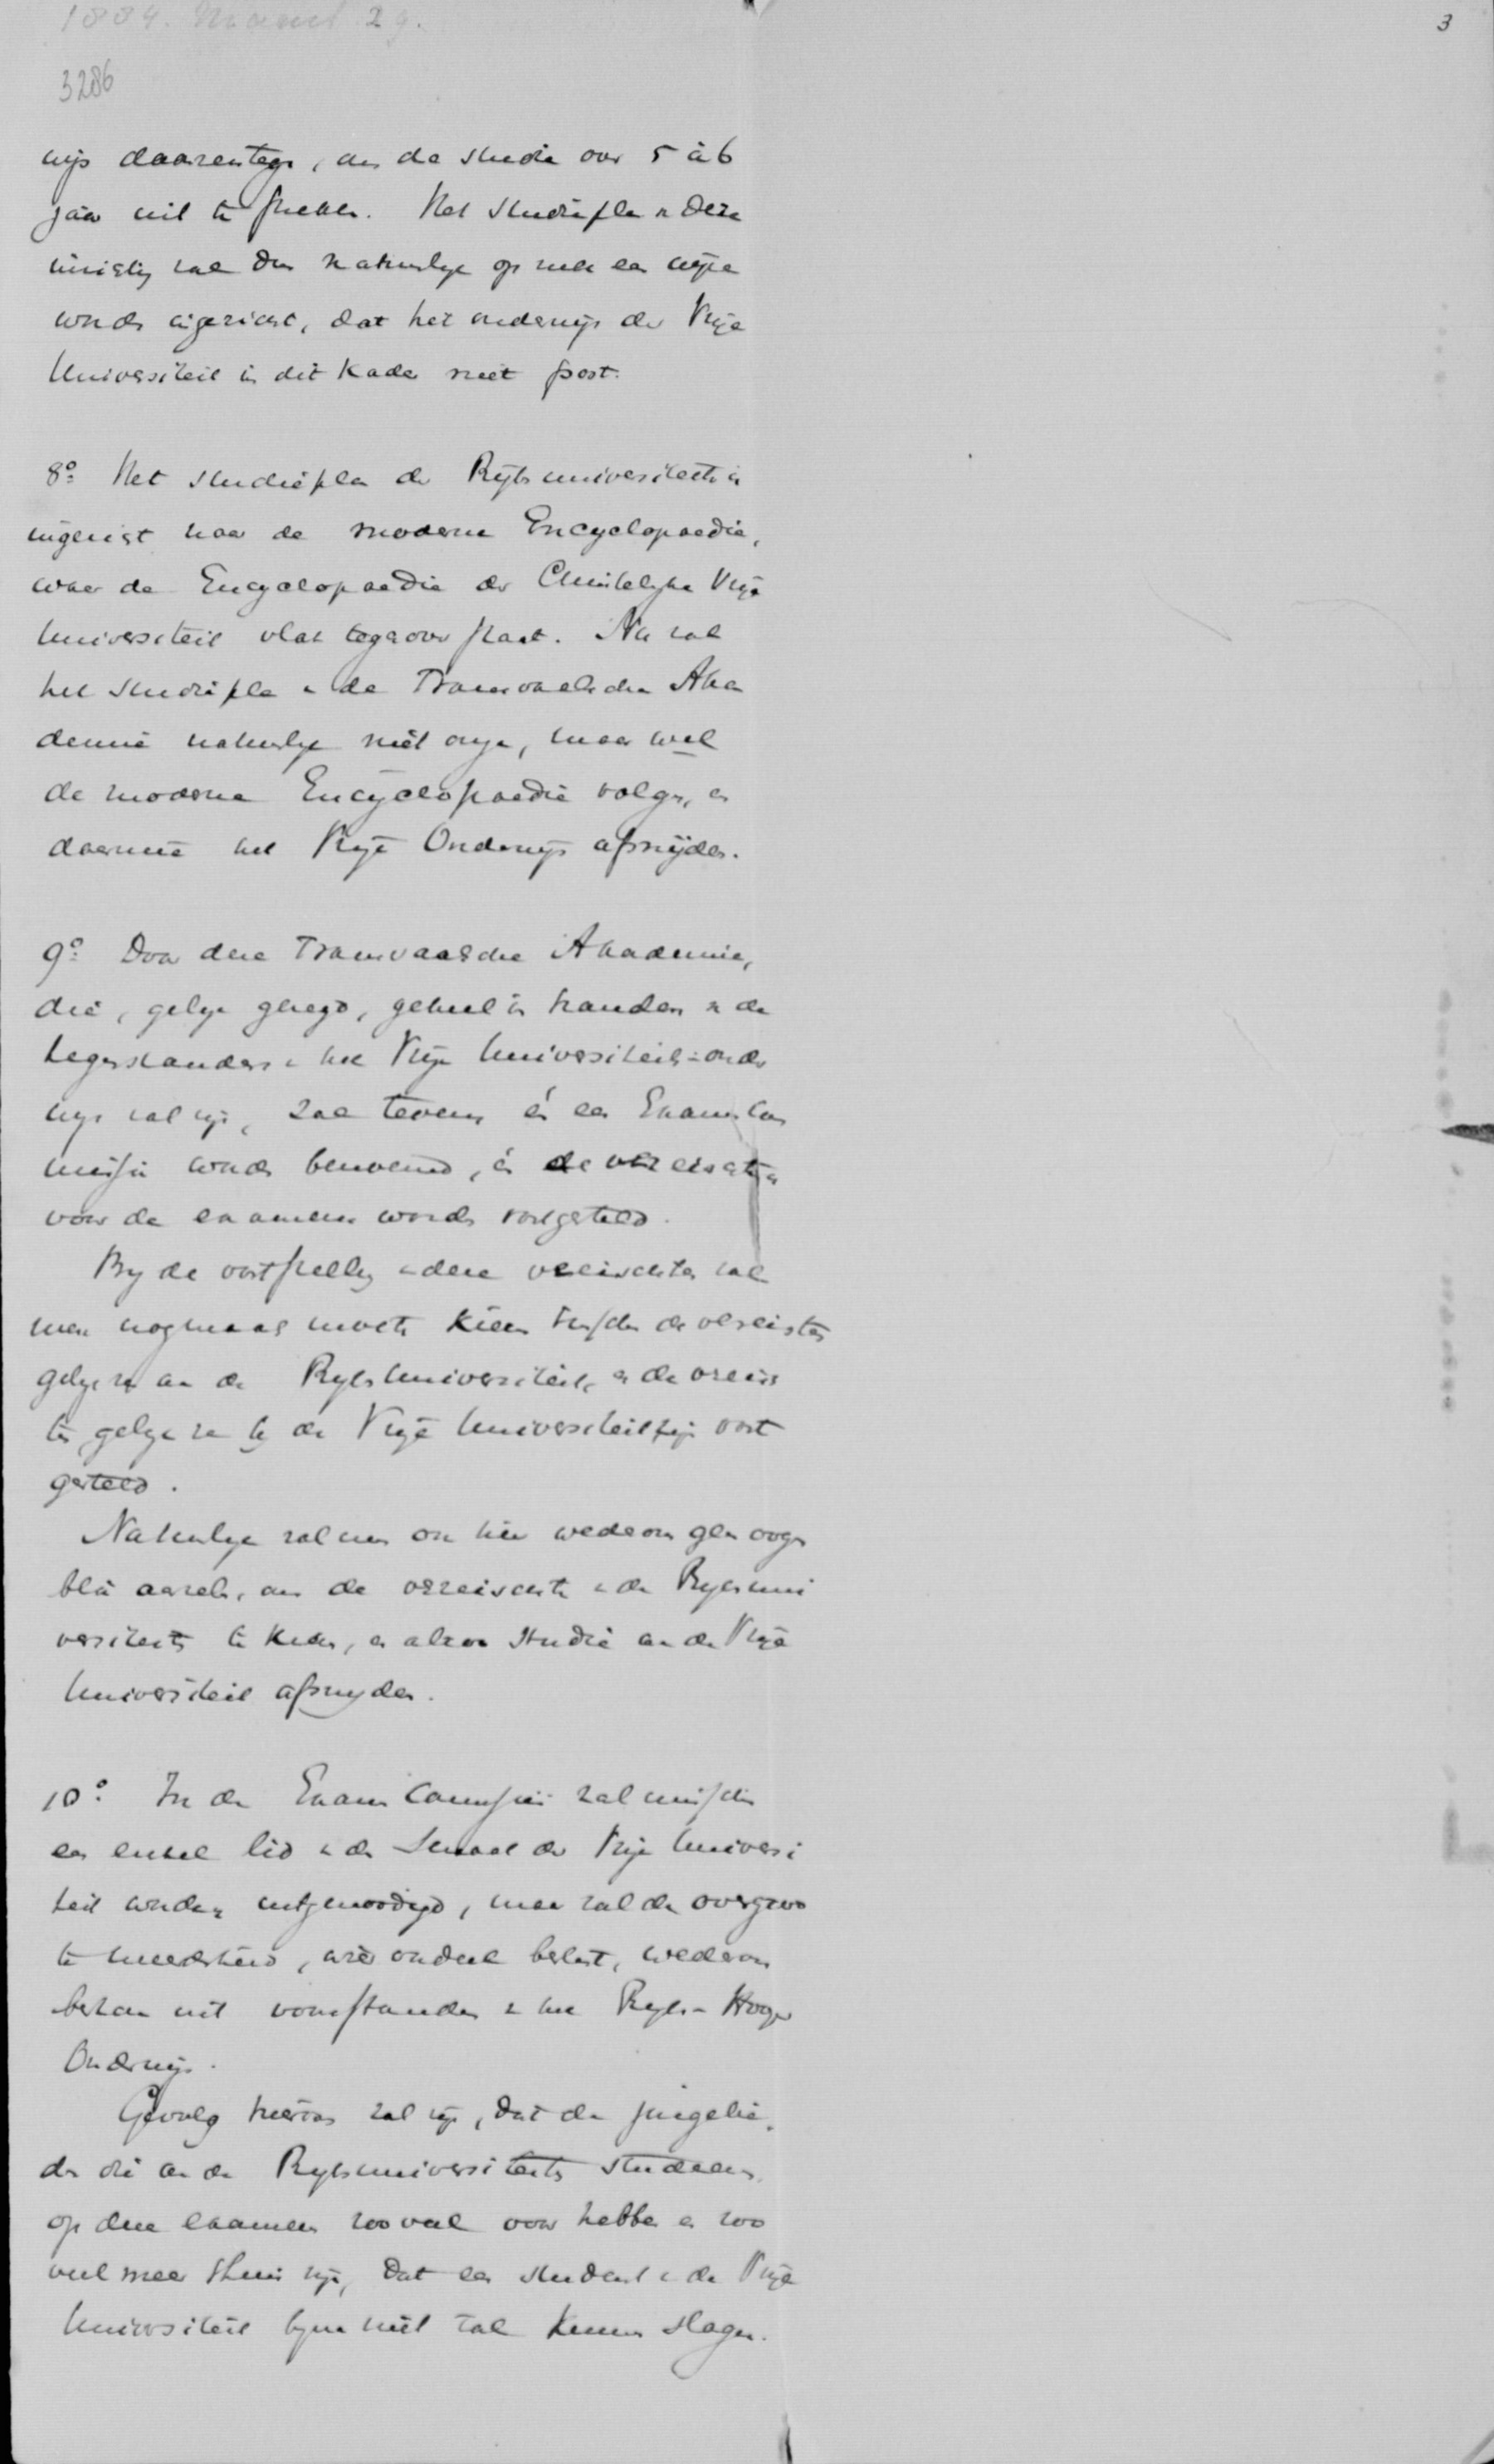 1884. Maart 29.
3
3286
wijs daarentegen, om de studie over 5 à 6
jaar uit te strekken. Het studieplan v deze
zal dus natuurlijk op zulk een wijze
worden ingericht, dat het onderwijs der Vrije
Universiteit in dit kader niet past.
8º. Het studieplan der Rijksuniversiteiten is
ingericht naar de moderne Encyclopaedie,
waar de Encyclopaedie der Christelijke Vrije
Universiteit vlak tegenover staat. Nu zal
het studieplan v de Transvaalsche Aka
demie natuurlijk niet onze, maar wel
de moderne Encyclopaedie volgen, en
daarmee het Vrije Onderwijs afsnijden.
9º. Door deze Transvaalsche Akademie,
die, gelijk gezegd, geheel in handen v de
tegenstanders v het Vrije Universiteits-onder
wijs zal zijn, zal tevens én een Examen Com
missie worden benoemd, én de vereischten
voor de examens worden vastgesteld.
Bij de vaststelling v deze vereischten zal
men nogmaals moeten kiezen tusschen de vereischten
gelijk ze aan de Rijks Universiteiten, en de vereisch
ten gelijk ze bij de Vrije Universiteit zijn vast
gesteld.
Natuurlijk zal men ook hier wederom geen oogen
blik aarzelen, om de vereischten v de Rijksuni
versiteiten te kiezen, en alzoo studie aan de Vrije
Universiteit afsnijden.
10º. In de Examen Commissie zal misschien
een enkel lid v de Senaat der Vrije Universi
teit worden uitgenoodigd, maar zal de overgroo
te meerderheid, wier oordeel beslist, wederom
bestaan uit voorstanders v het Rijks-Hooger
Onderwijs.
Gevolg hiervan zal zijn, dat de jongelie-
den die aan de Rijksuniversiteiten studeeren
op deze examens zooveel voor hebben en zoo
veel meer thuis zijn, dat een student v de Vrije
Universiteit bijna niet zal kunnen slagen.